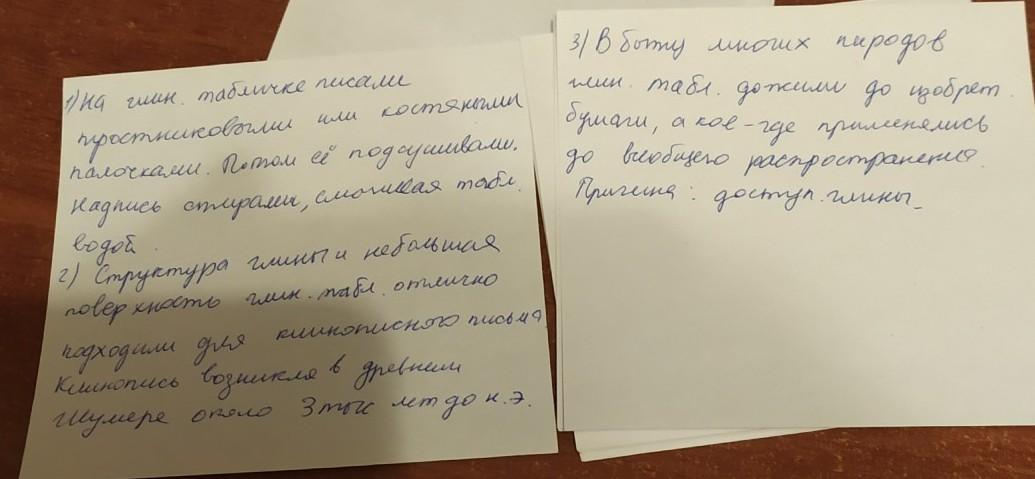 1) На глин. табличке писали
тростниковыми или костяными
палочками. Потом её подсушивали.
Надпись стирали, смачивая табл.
водой.
2) Структура глины и небольшая
поверхность глин. табл. отлично
подходили для клинописного письма.
Клинопись возникла в древнем
Шумере около 3 тыс лет до н.э.
3) В быту многих народов
глин. табл. дожили до изобрет.
бумаги, а кое-где применялись
до всеобщего распространения.
Причина: доступ. глины.